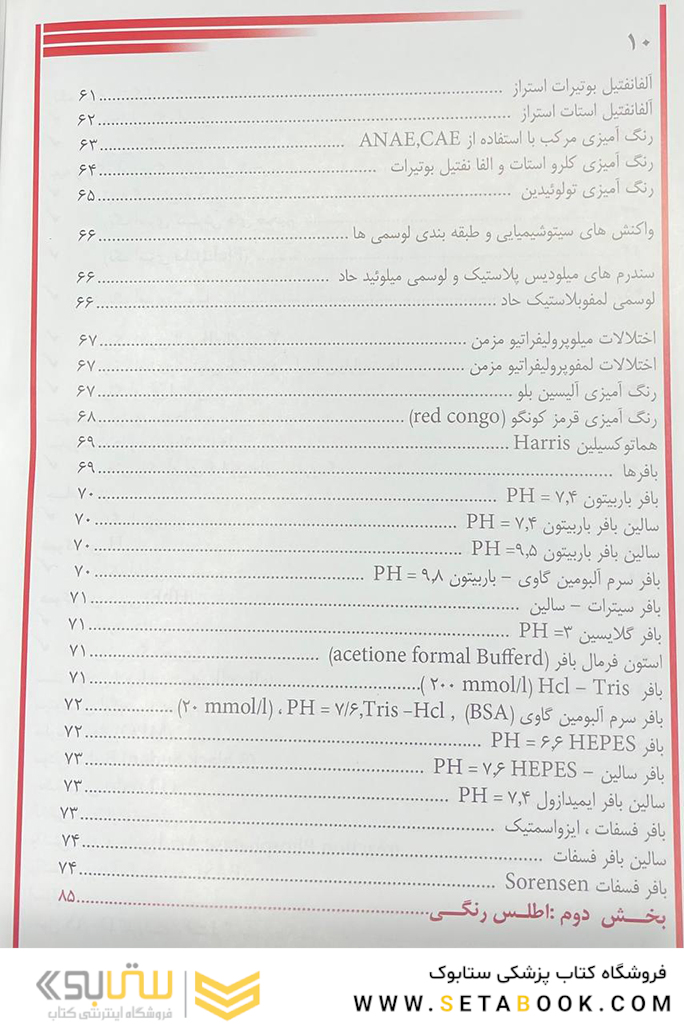 ۱۰
آلفانفتیل بوتیرات استراز ........ ۶۱
آلفانفتیل استات استراز ........ ۶۲
رنگ آمیزی مرکب با استفاده از ANAE,CAE ........ ۶۳
رنگ آمیزی کلرو استات و الفا نفتیل بوتیرات ........ ۶۴
رنگ آمیزی تولوئیدین ........ ۶۵
واکنش های سیتوشیمیایی و طبقه بندی لوسمی ها ........ ۶۶
سندرم های میلودیس پلاستیک و لوسمی میلوئید حاد ........ ۶۶
لوسمی لمفوبلاستیک حاد ........ ۶۶
اختلالات میلوپرولیفراتیو مزمن ........ ۶۷
اختلالات لمفوپرولیفراتیو مزمن ........ ۶۷
رنگ آمیزی آلیسین بلو ........ ۶۷
رنگ آمیزی قرمز کونگو (red congo) ........ ۶۸
هماتوکسیلین Harris ........ ۶۹
بافرها ........ ۶۹
بافر باربیتون PH = ۷,۴ ........ ۷۰
سالین بافر باربیتون PH = ۷,۴ ........ ۷۰
سالین بافر باربیتون PH =۹,۵ ........ ۷۰
بافر سرم آلبومین گاوی – باربیتون PH = ۹,۸ ........ ۷۰
بافر سیترات – سالین ........ ۷۱
بافر گلایسین PH =۳ ........ ۷۱
استون فرمال بافر (acetione formal Bufferd) ........ ۷۱
بافر Hcl – Tris (۲۰۰ mmol/l) ........ ۷۱
بافر سرم آلبومین گاوی (BSA) , PH = ۷/۶,Tris –Hcl ، (۲۰ mmol/l) ........ ۷۲
بافر PH = ۶,۶ HEPES ........ ۷۲
بافر سالین – PH = ۷,۶ HEPES ........ ۷۳
سالین بافر ایمیدازول PH = ۷,۴ ........ ۷۳
بافر فسفات ، ایزواسمتیک ........ ۷۳
سالین بافر فسفات ........ ۷۴
بافر فسفات Sorensen ........ ۷۴
بخش دوم :اطلس رنگی ........ ۸۵
فروشگاه کتاب پزشکی ستابوک
WWW.SETABOOK.COM
ستابوک
فروشگاه اینترنتی کتاب